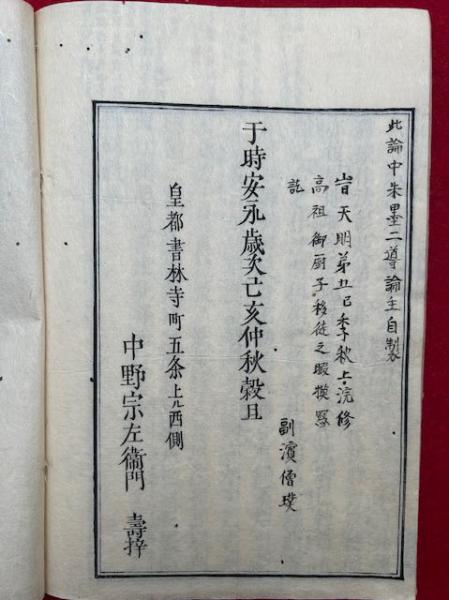 此論中朱墨二導論主自製
旹天明第五巳季秋上浣修
高祖御厨子移徒之暇摸写
訖
副濱僧璞
于時安永歳次己亥仲秋穀旦
皇都書林寺町五条上ル西側
中野宗左衛門 壽梓